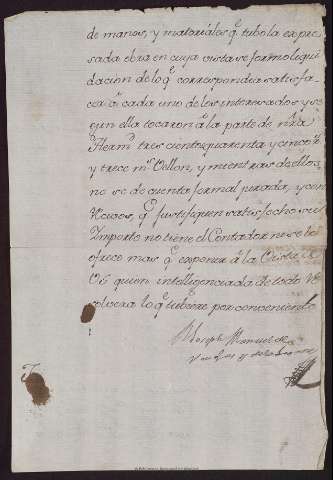 de manos, y materiáles q.e tubo la expre
sada obra en cuya vista se formó liqui
dacion de lo q.e corresponde a satisfa
cer á cada uno de los interesados y se
gun ella tocaron á la parte de nra
Herm.d tres cientos quarenta y cinco r.s
y trece m.s Vellon, y mientras de ellos
no se de cuenta formal jurada, y con
Recivos, q.e justifiquen satisfecho su
Importe no tiene el Contador no se le
ofrece mas q.e exponer á la
quien inteligenciada de todo re
solvera lo q.e tubiere por conveniente
Joseph Manuel de